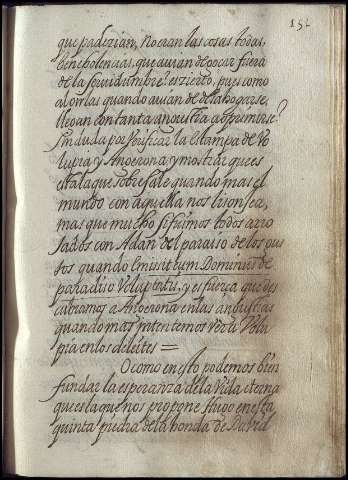 152
que padezian, No eran las cosas todas,
benebolencias, que auian de tocar fuera
de la seruidumbre? es zierto, pues como
al oirlas quando auian de desahogarse,
lleban con tanta angustia a deprimirse?
sin duda por Verificar la estampa de Vo
lupia y Angerona y mostrar que es
esta la que sobresale quando mas el
mundo con aquella nos lisongea,
mas que mucho si fuimos todos arro
jados con Adan del paraiso de los gus
tos quando Emissit eum Dominus de
paradiso Voluptatis, y es fuerça que des
cubramos a Angerona en las angustias
quando mas intentemos Ver a Volu
pia en los deleites =
O como en esto podemos bien
fundar la esperanza de la Vida eterna
que es la que nos propone Hugo en esta
quinta piedra de la honda de David